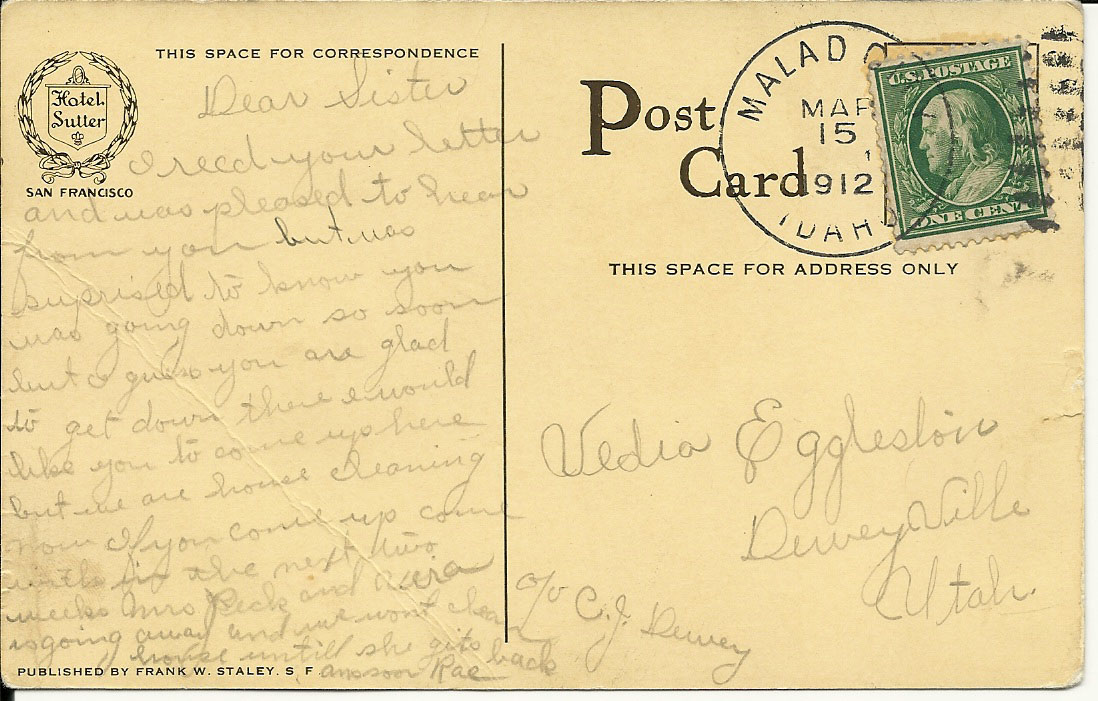 THIS SPACE FOR CORRESPONDENCE
Hotel
Sutter
SAN FRANCISCO
Dear Sister
I recd your letter
and was pleased to hear
from you but was
suprised to know you
was going down so soon
but I guess you are glad
to get down there I would
like you to come up here
but we are house cleaning
now If you come up come
in the next two
weeks Mrs Peck and
is going away and we wont clean
house untill she gets back
Rae
PUBLISHED BY FRANK W. STALEY. S F.
Post
Card
MALAD
MAR
15
1912
IDAHO
U.S. POSTAGE
ONE CENT
THIS SPACE FOR ADDRESS ONLY
Vedia Eggleston
DeweyVille
Utah.
c/o C.J. Dewey